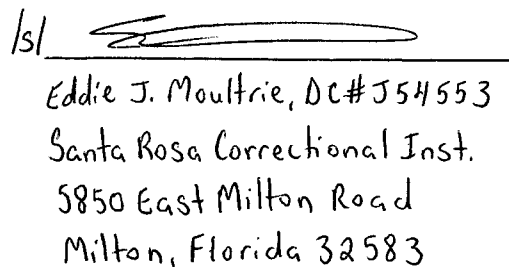 /s/
Eddie J. Moultrie, DC# J54553
Santa Rosa Correctional Inst.
5850 East Milton Road
Milton, Florida 32583